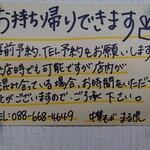 お持ち帰りできます
事前予約、TEL予約もお願いします
来店時でも可能ですが店内が
混み合っている場合、お時間をいただく
ことがございますので、ご了承下さい。
TEL:088-668-4649 中華そば まる民